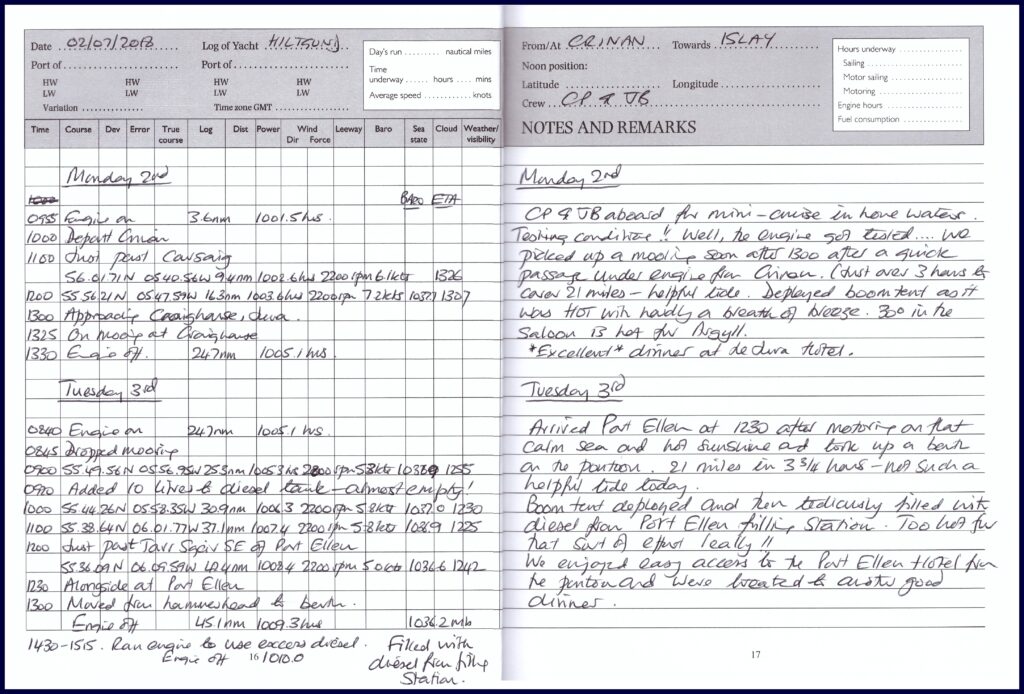 Date 02/07/2018 Log of Yacht HILTSUND
Port of Port of
HW HW HW HW
LW LW LW LW
Variation Time zone GMT
Day's run nautical miles
Time
underway hours mins
Average speed knots
Time Course Dev Error True course Log Dist Power Wind Dir Force Leeway Baro Sea state Cloud Weather/visibility
Monday 2nd
1000 BARO ETA
0955 Engine on 3.6nm 1001.5 hrs.
1000 Depart Crinan
1100 Just past Carsaig
56.01.71N 05.40.56W 9.4nm 1002.6hrs 2200rpm 6.1kts 1326
1200 55.56.21N 05.47.59W 16.3nm 1003.6hrs 2200rpm 7.2kts 1037.7 1307
1300 Approaching Craighouse, Jura.
1325 On mooring at Craighouse
1330 Engine off. 24.7nm 1005.1 hrs.
Tuesday 3rd
0840 Engine on 24.7nm 1005.1 hrs.
0845 Dropped mooring
0900 55.49.56N 05.56.95W 25.5nm 1005.3hrs 2200rpm 5.8kts 1255
0920 Added 10 litres to diesel tank - almost empty!
1000 55.44.26N 05.58.35W 30.9nm 1006.3 2200rpm 5.8kts 1037.0 1230
1100 55.38.64N 06.01.77W 37.1nm 1007.4 2200rpm 5.8kts 1036.9 1225
1200 Just past Tarr Sgeir SE of Port Ellen
55.36.09N 06.09.59W 42.4nm 1008.4 2200rpm 5.0kts 1036.6 1242
1230 Alongside at Port Ellen
1300 Moved from hammerhead to berth.
Engine off 45.1nm 1009.3hrs 1036.2 Mb
1430-1515. Ran engine to use excess diesel. Filled with
Engine off 1010.0 diesel from filling
Station.
16
From/At CRINAN Towards ISLAY
Noon position:
Latitude Longitude
Crew CP & JB
NOTES AND REMARKS
Hours underway
Sailing
Motor sailing
Motoring
Engine hours
Fuel consumption
Monday 2nd
CP & JB aboard for mini-cruise in home waters.
Testing conditions!! Well, the engine got tested.... We
picked up a mooring soon after 1300 after a quick
passage under engine from Crinan. (Just over 3 hours to
cover 21 miles - helpful tide. Deployed boom tent as it
was HOT with hardly a breath of breeze. 30° in the
Saloon is hot for Argyll.
*Excellent* dinner at the Jura Hotel.
Tuesday 3rd
Arrived Port Ellen at 1230 after motoring on flat
calm sea and hot sunshine and took up a berth
on the pontoon. 21 miles in 3 3/4 hours - not such a
helpful tide today.
Boom tent deployed and then tediously filled with
diesel from Port Ellen filling Station. Too hot for
that sort of effort really!!
We enjoyed easy access to the Port Ellen Hotel from
the pontoon and were treated to another good
dinner.
17